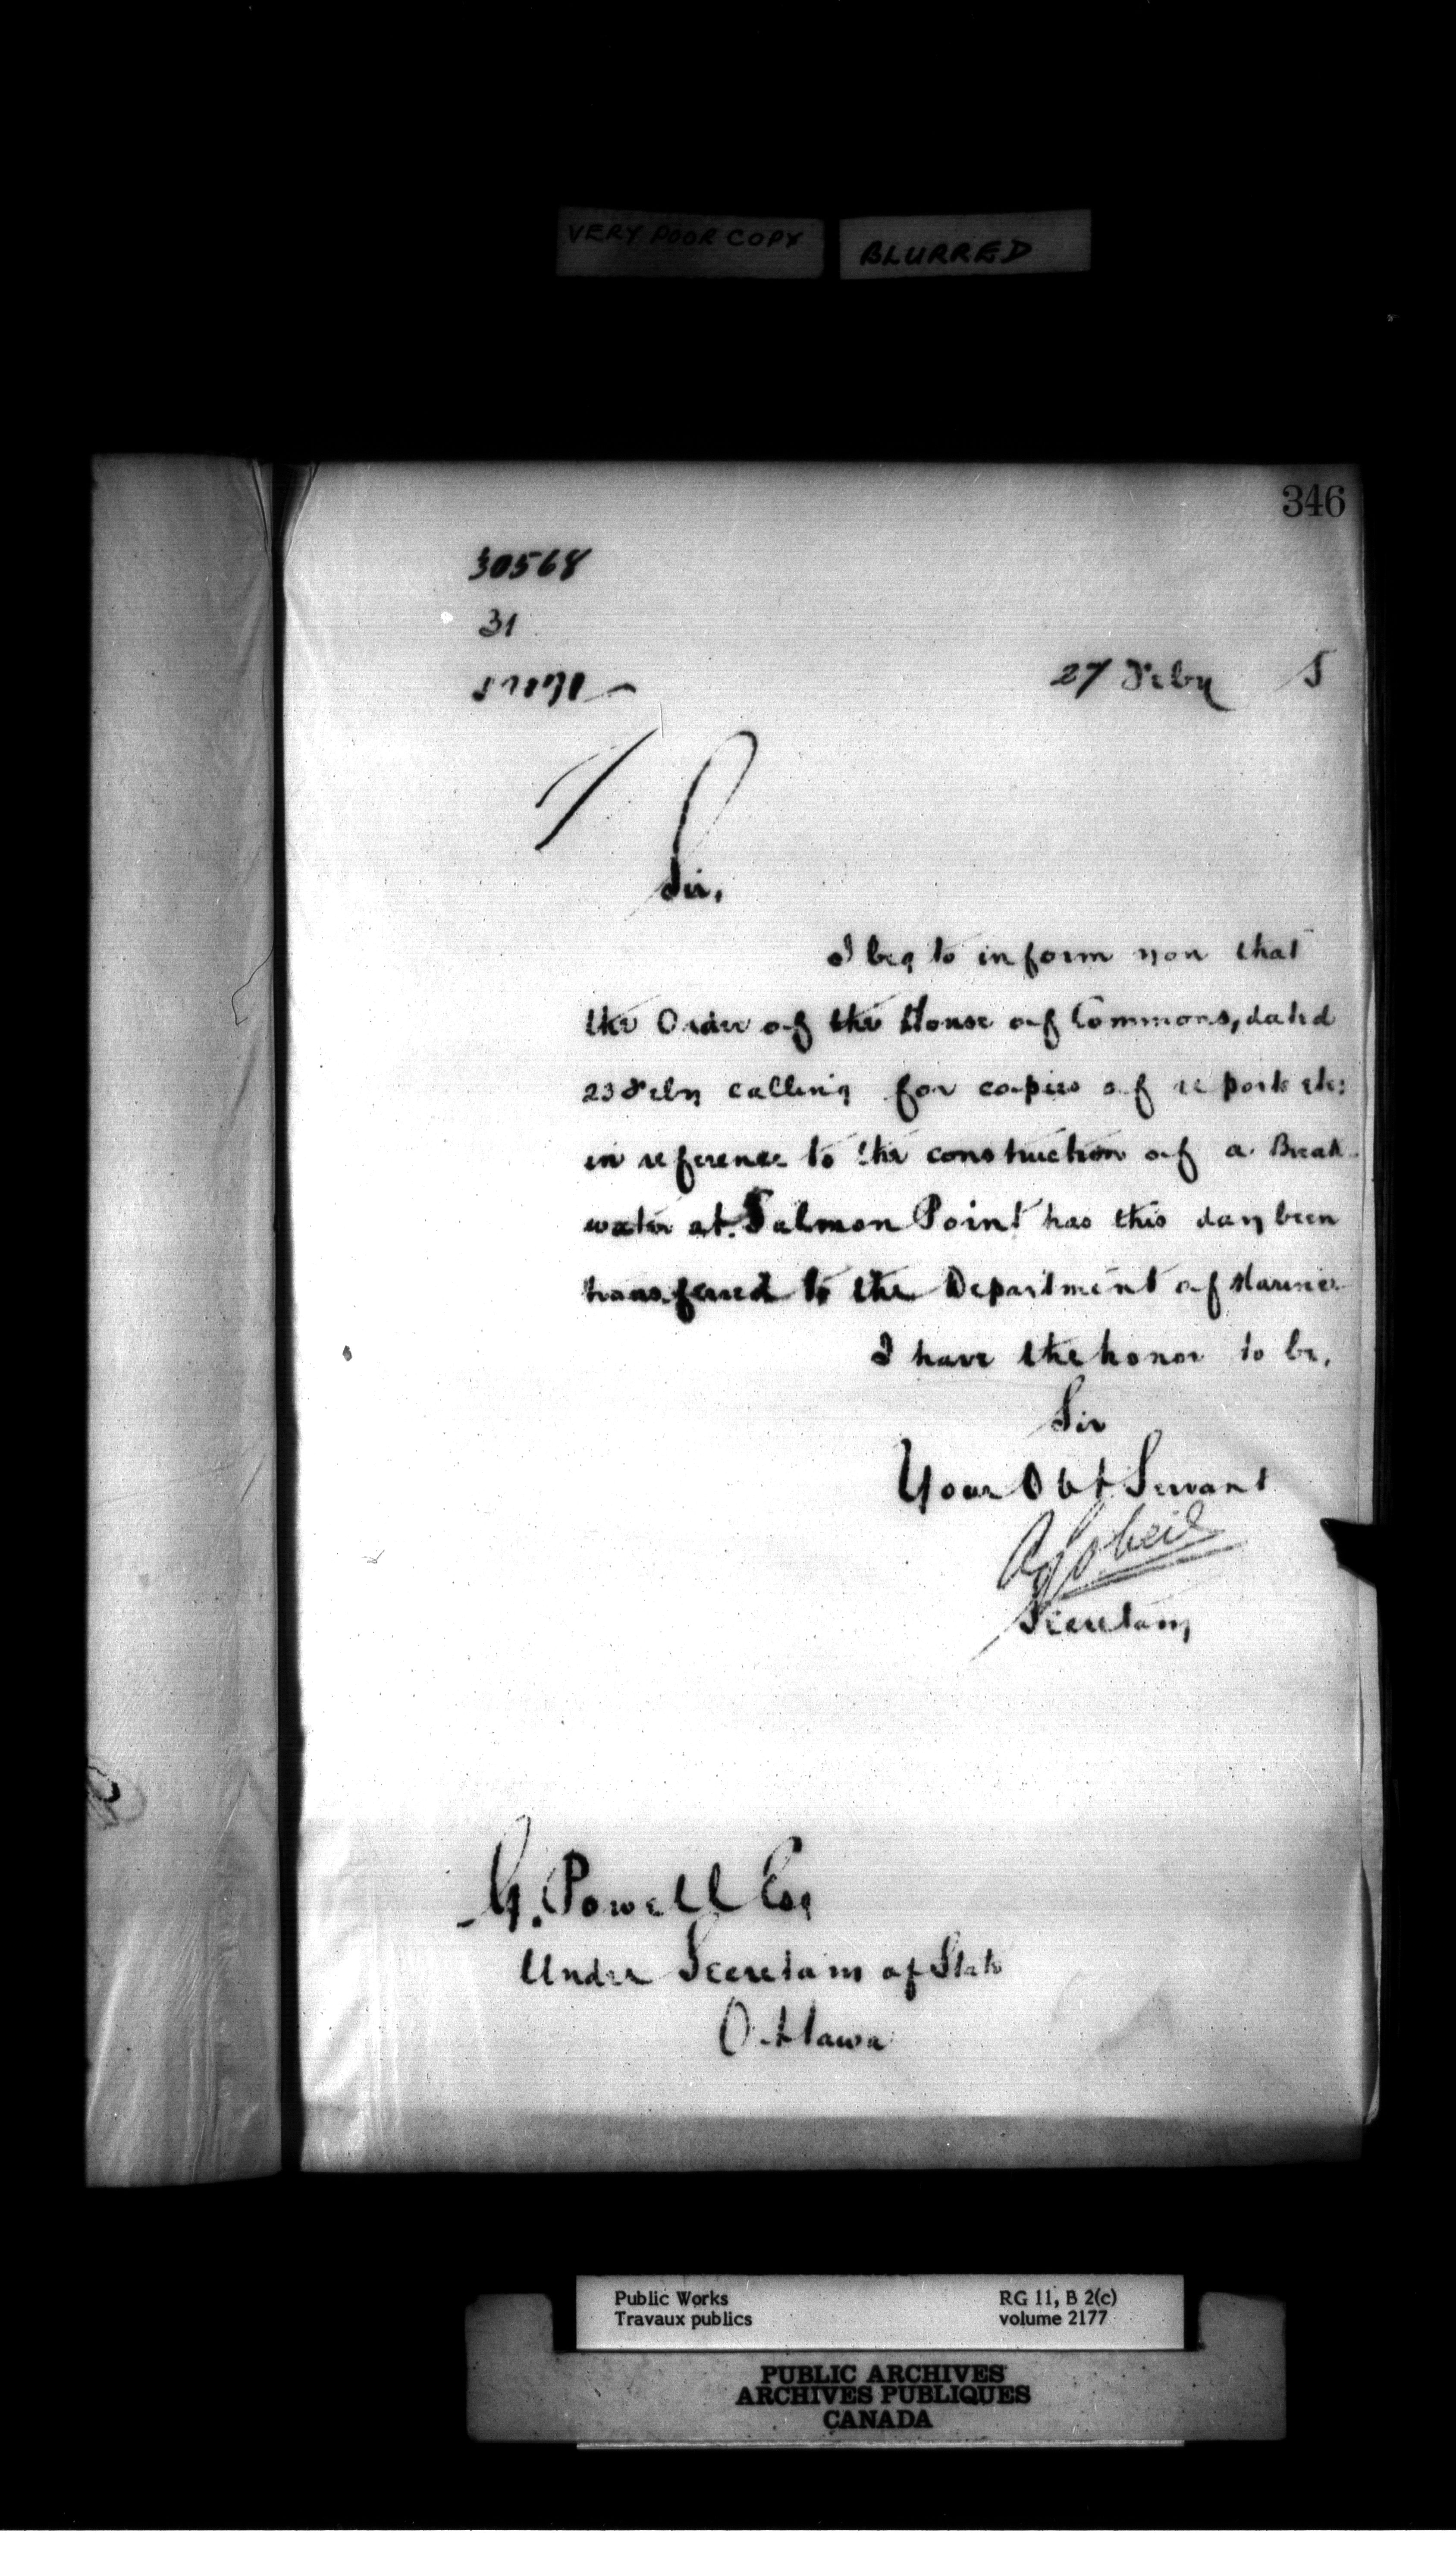 VERY POOR COPY
BLURRED
346
30568
31
27 Feby 5
Sir,
I beg to inform you that
the Order of the House of Commons, dated
23 Feby calling for copies of reports etc:
in reference to the construction of a Break-
water at Salmon Point has this day been
transferred to the Department of Marine.
I have the honor to be,
Sir
Your Obt Servant
A Gobeil
Secretary
G. Powell Esq
Under Secretary of State
Ottawa
Public Works RG 11, B 2(c)
Travaux publics volume 2177
PUBLIC ARCHIVES
ARCHIVES PUBLIQUES
CANADA